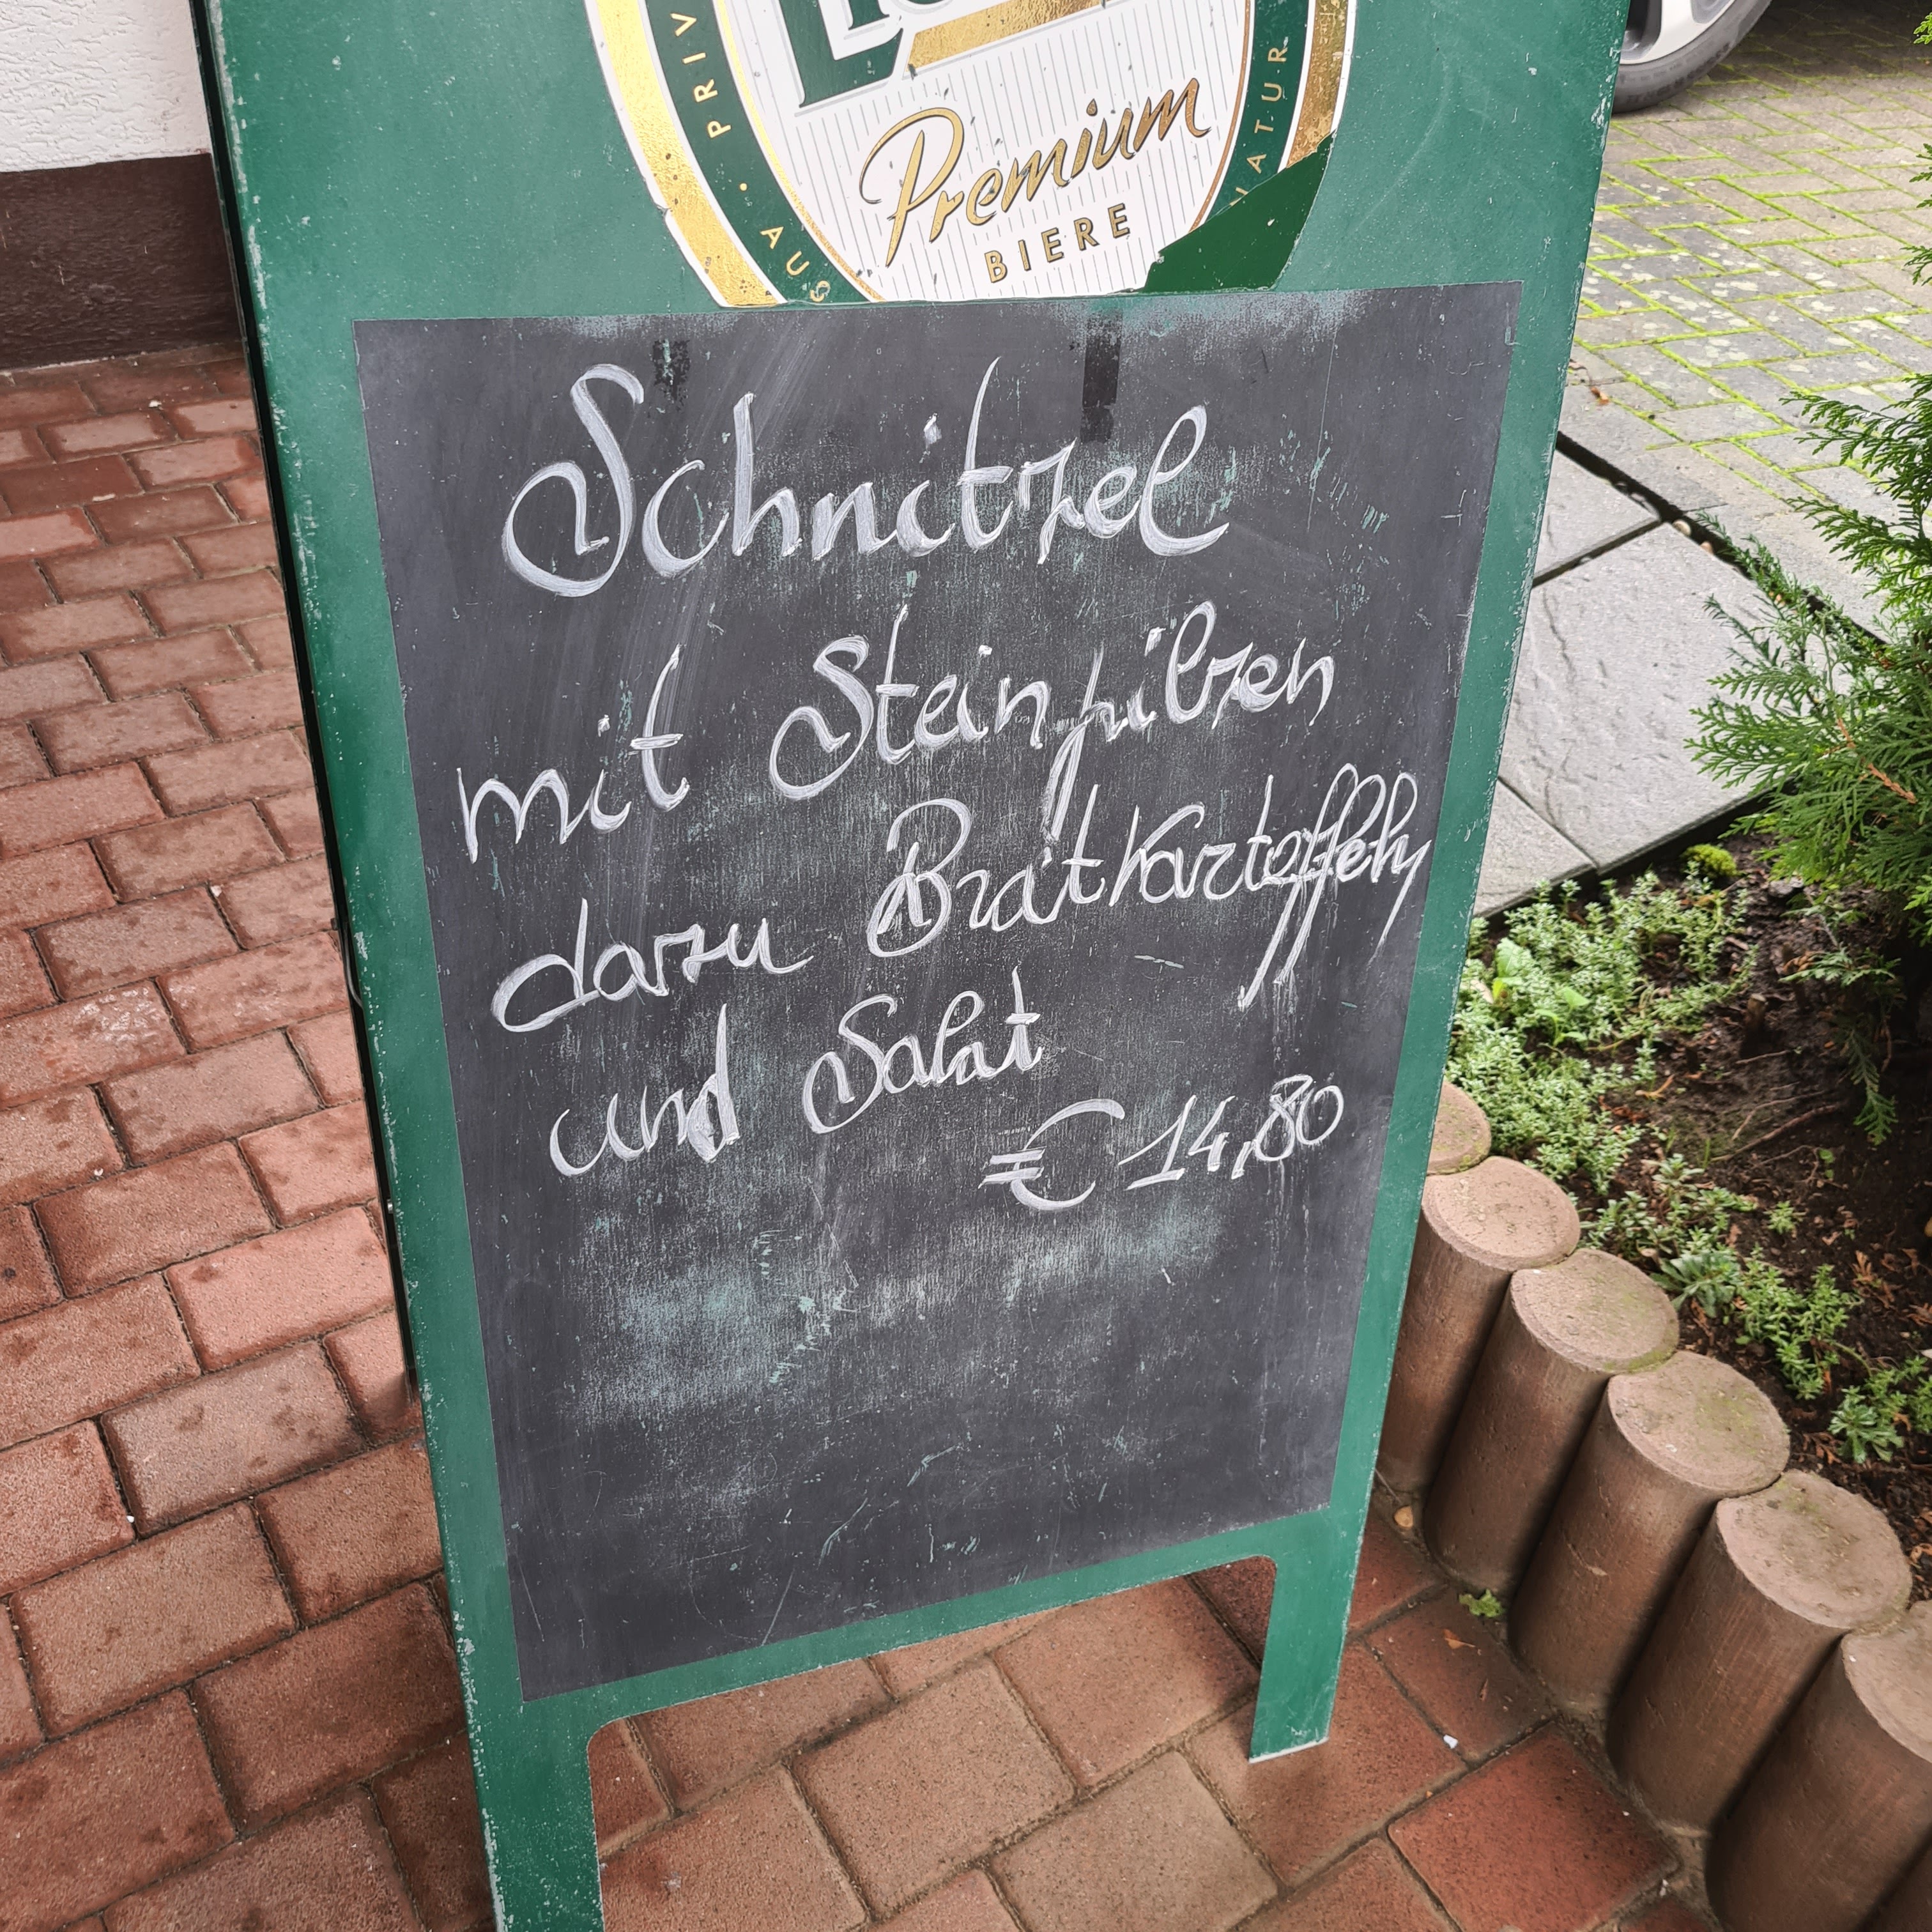 PRIV
NATUR
Premium
BIERE
Schnitzel
mit Steinpilzen
dazu Bratkartoffeln
und Salat
€ 14,80